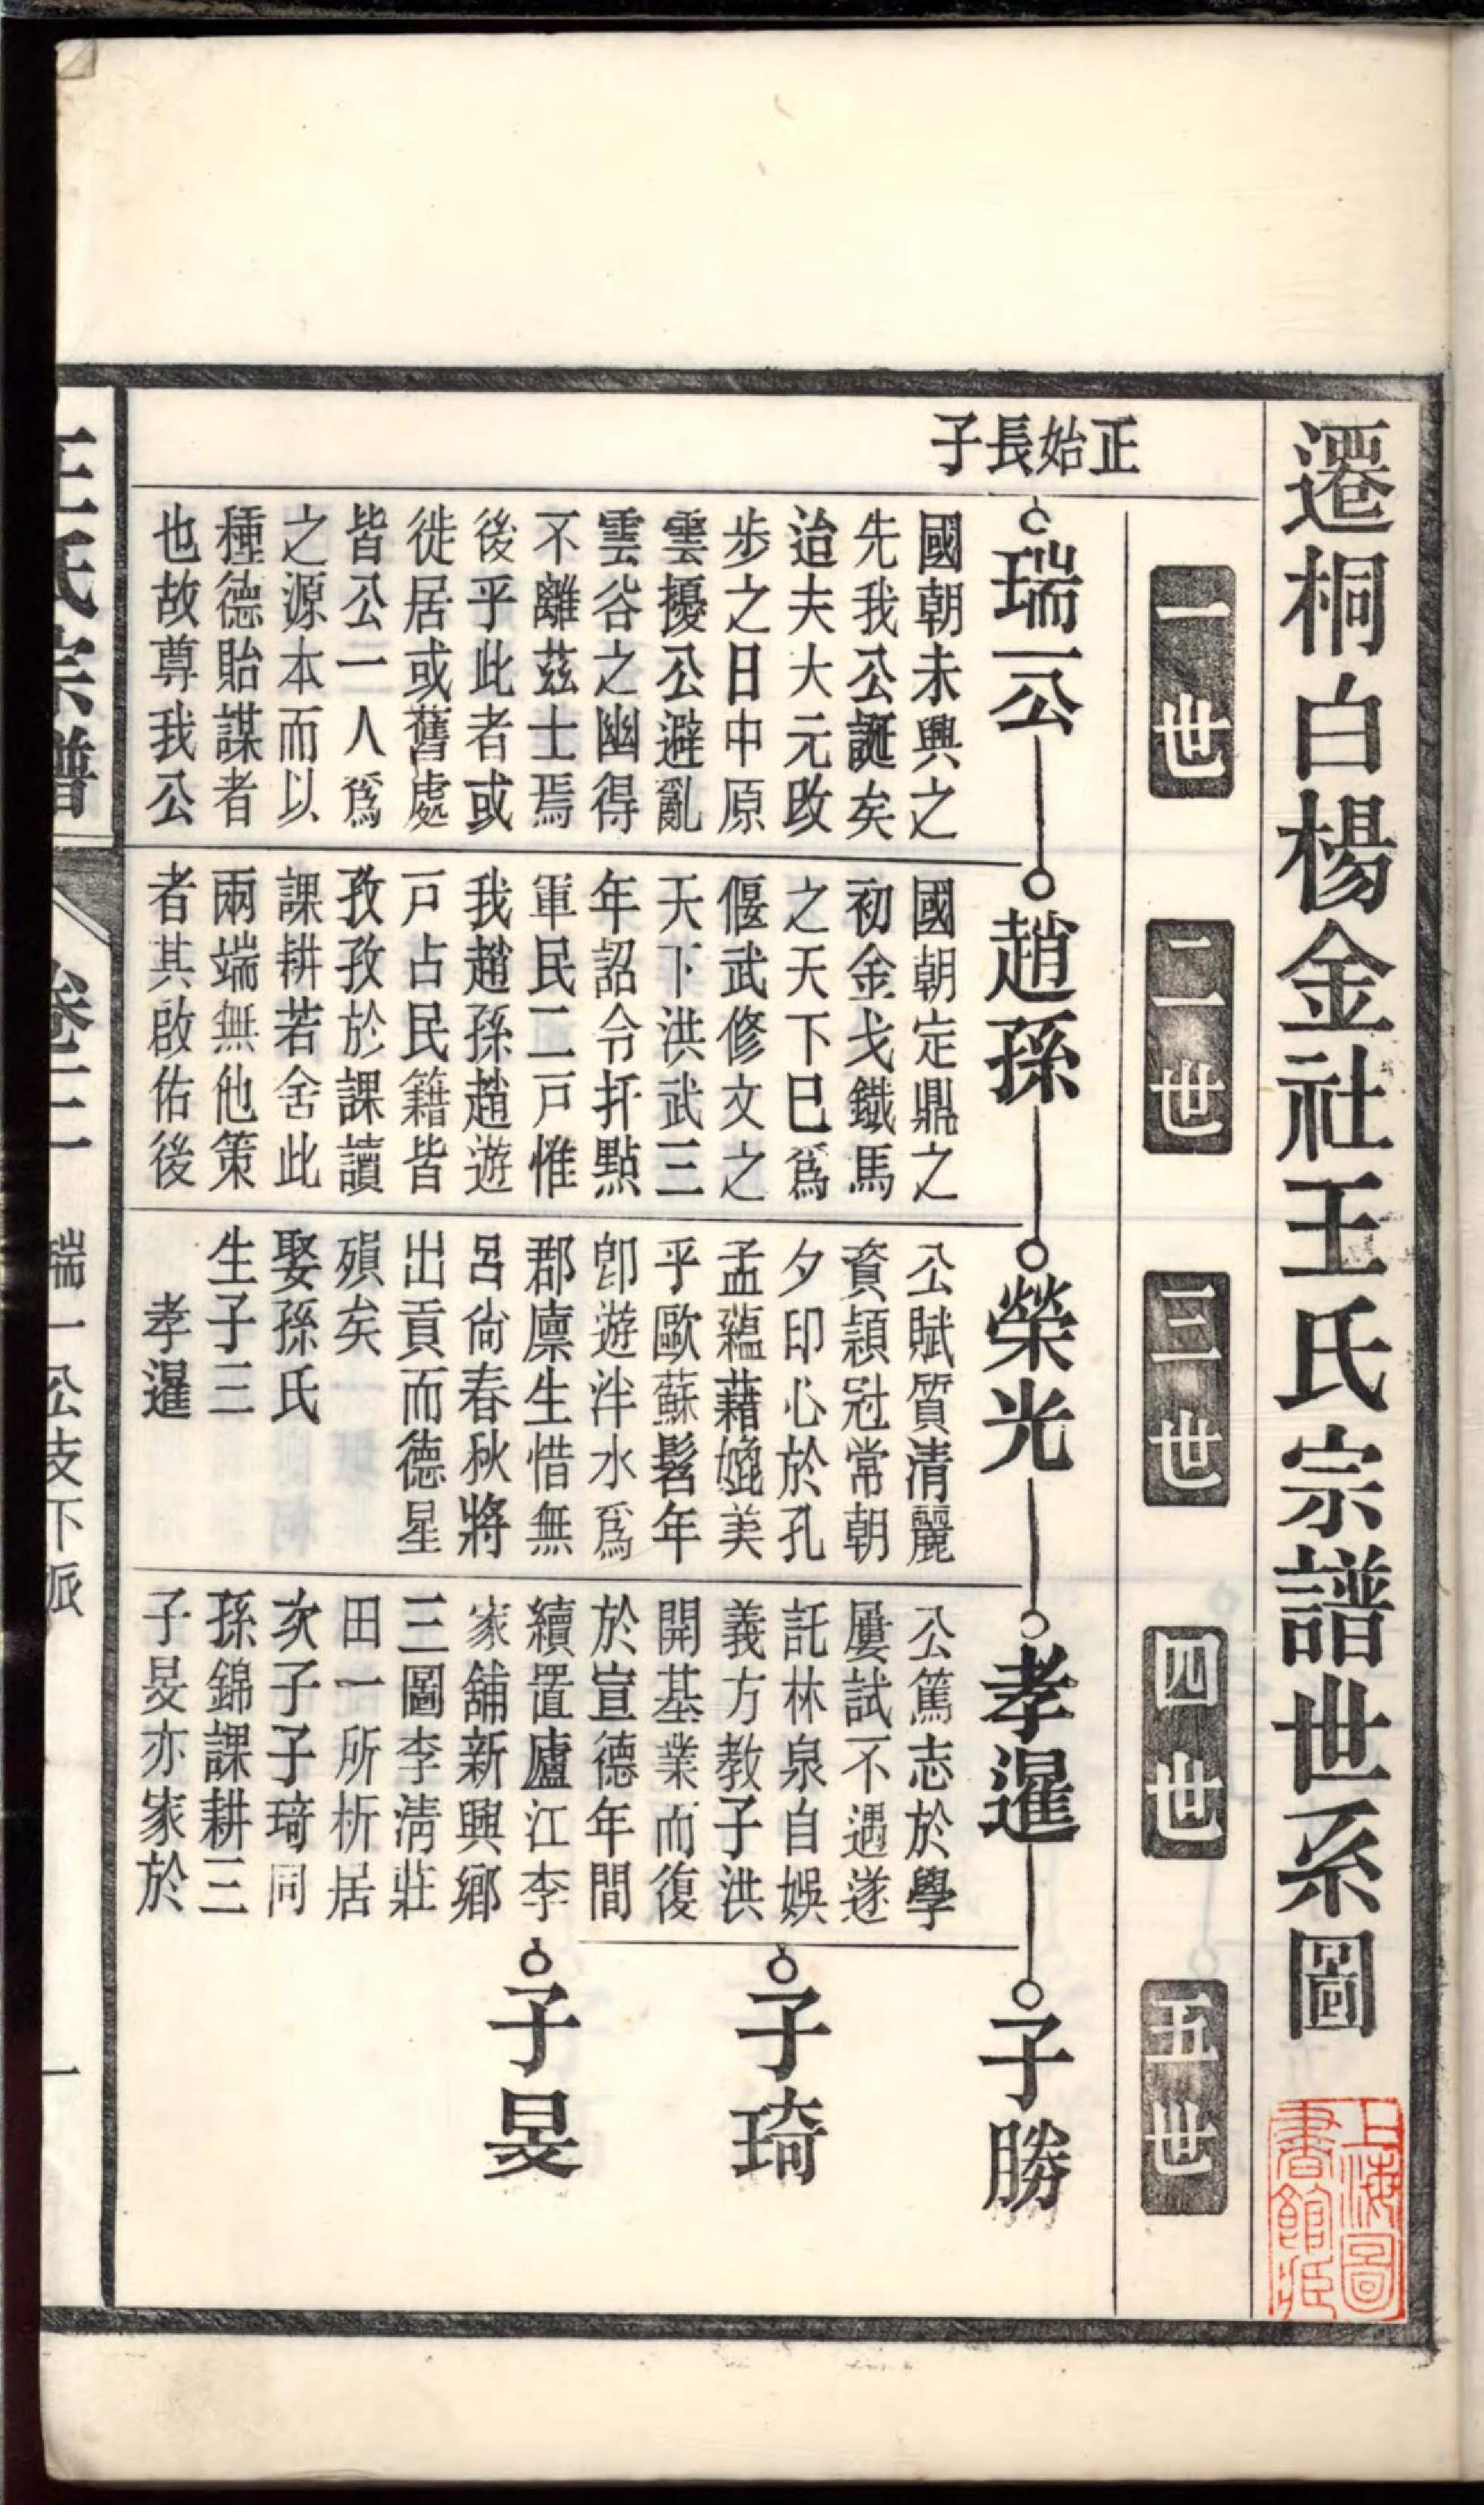 遷桐白楊金社王氏宗譜世系圖
上海圖
書館藏
一世
二世
三世
四世
五世
正始長子
瑞一公
國朝未興之
先我公誕矣
迨夫大元改
步之日中原
雲擾公避亂
雲谷之幽得
不離茲土焉
後乎此者或
徙居或舊處
皆公一人爲
之源本而以
種德貽謀者
也故尊我公
趙孫
國朝定鼎之
初金戈鐵馬
之天下巳爲
偃武修文之
天下洪武三
年詔令扦點
軍民二戸惟
我趙孫趙遊
戸占民籍皆
孜孜於課讀
課耕若舍此
兩端無他策
者其啟佑後
榮光
公賦質清麗
資穎冠常朝
夕印心於孔
孟蘊藉媲美
乎歐蘇髫年
卽遊泮水爲
郡廩生惜無
呂尙春秋將
出貢而德星
殞矣
娶孫氏
生子三
孝暹
孝暹
公篤志於學
屢試不遇遂
託林泉自娛
義方教子洪
開基業而復
於宣德年間
續置廬江李
家舖新興鄉
三圖李清莊
田一所析居
次子子琦同
孫錦課耕三
子旻亦家於
子勝
子琦
子旻
王氏宗譜
卷二
瑞一公支下派
一